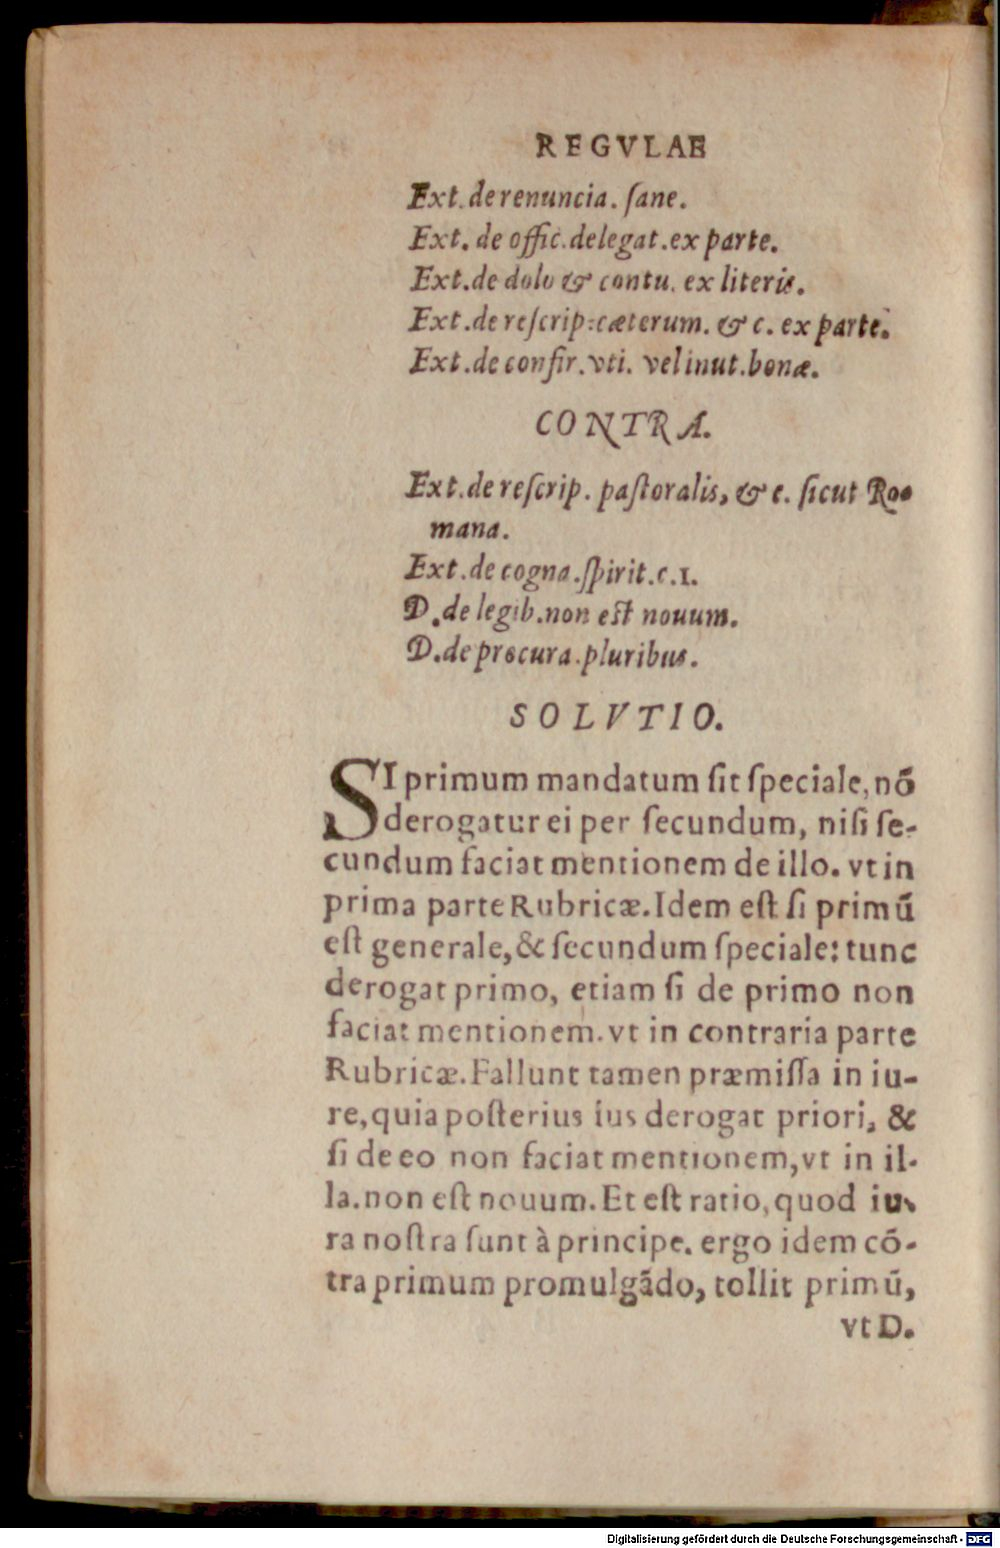 REGVLAE
Ext. de renuncia. ſane.
Ext. de offic. delegat. ex parte.
Ext. de dolo & contu. ex literis.
Ext. de reſcrip. cæterum. & c. ex parte.
Ext. de confir. vti. vel inut. bonæ.
CONTRA.
Ext. de reſcrip. paſtoralis, & c. ſicut Ro-
mana.
Ext. de cogna. ſpirit. c. 1.
D. de legib. non eſt nouum.
D. de procura. pluribus.
SOLVTIO.
SI primum mandatum ſit ſpeciale, nõ
derogatur ei per ſecundum, niſi ſe-
cundum faciat mentionem de illo. vt in
prima parte Rubricæ. Idem eſt ſi primũ
eſt generale, & ſecundum ſpeciale: tunc
derogat primo, etiam ſi de primo non
faciat mentionem. vt in contraria parte
Rubricæ. Fallunt tamen præmiſſa in iu-
re, quia poſterius ius derogat priori, &
ſi de eo non faciat mentionem, vt in il-
la. non eſt nouum. Et eſt ratio, quod iu-
ra noſtra ſunt à principe. ergo idem cõ-
tra primum promulgãdo, tollit primũ,
vt D.
Digitalisierung gefördert durch die Deutsche Forschungsgemeinschaft - DFG